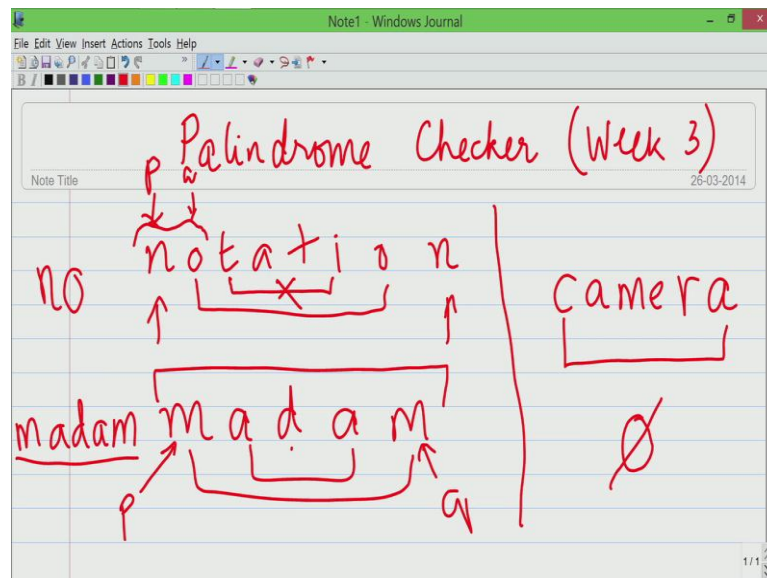 Note1 - Windows Journal
File Edit View Insert Actions Tools Help
B I
Palindrome Checker (Week 3)
Note Title
26-03-2014
p q
no n o t a t i o n
camera
madam m a d a m
Ø
p q
1 / 1